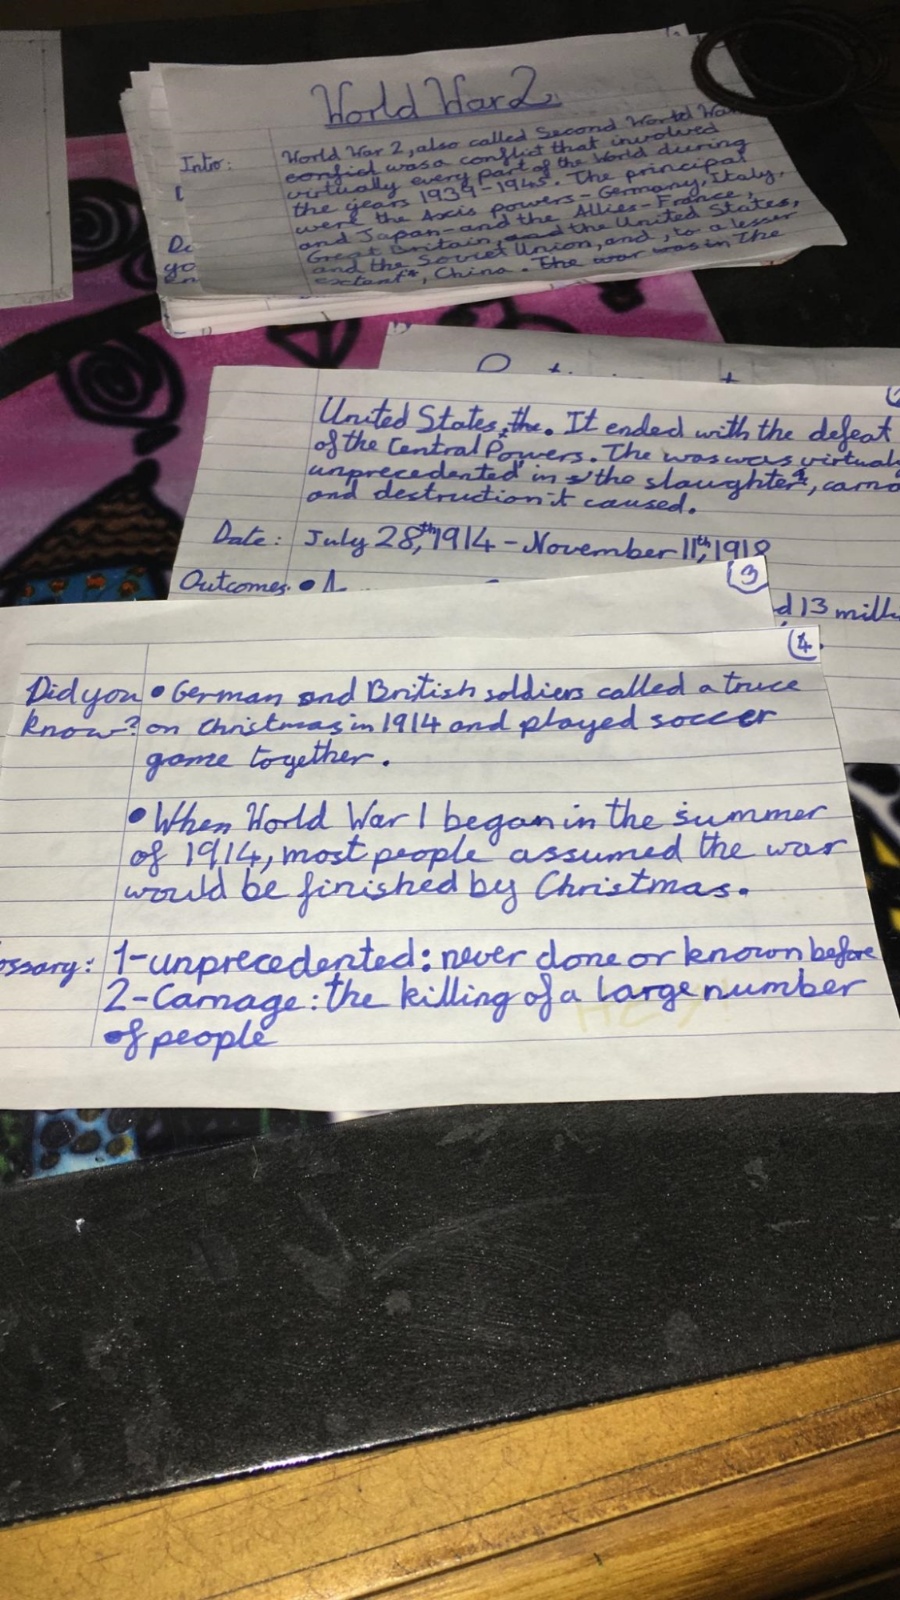 World War 2
Intro: World War 2, also called Second World War
conflict was a conflict that involved
virtually every part of the World during
the years 1939-1945. The principal
were the Axis powers - Germany, Italy,
and Japan - and the Allies - France,
Great Britain, and the United States,
and the Soviet Union, and, to a lesser
extent, China. The war was in The
yo
United States, the. It ended with the defeat
of the Central Powers. The was was virtual
unprecedented¹ in the slaughter, carna
and destruction it caused.
Date: July 28,th 1914 - November 11th, 1918
Outcomes.
3
d 13 mill
4
Did you • German and British soldiers called a truce
know? on Christmas in 1914 and played soccer
game together.
• When World War 1 began in the summer
of 1914, most people assumed the war
would be finished by Christmas.
ossary: 1-unprecedented: never done or known before
2-Carnage: the killing of a large number
of people